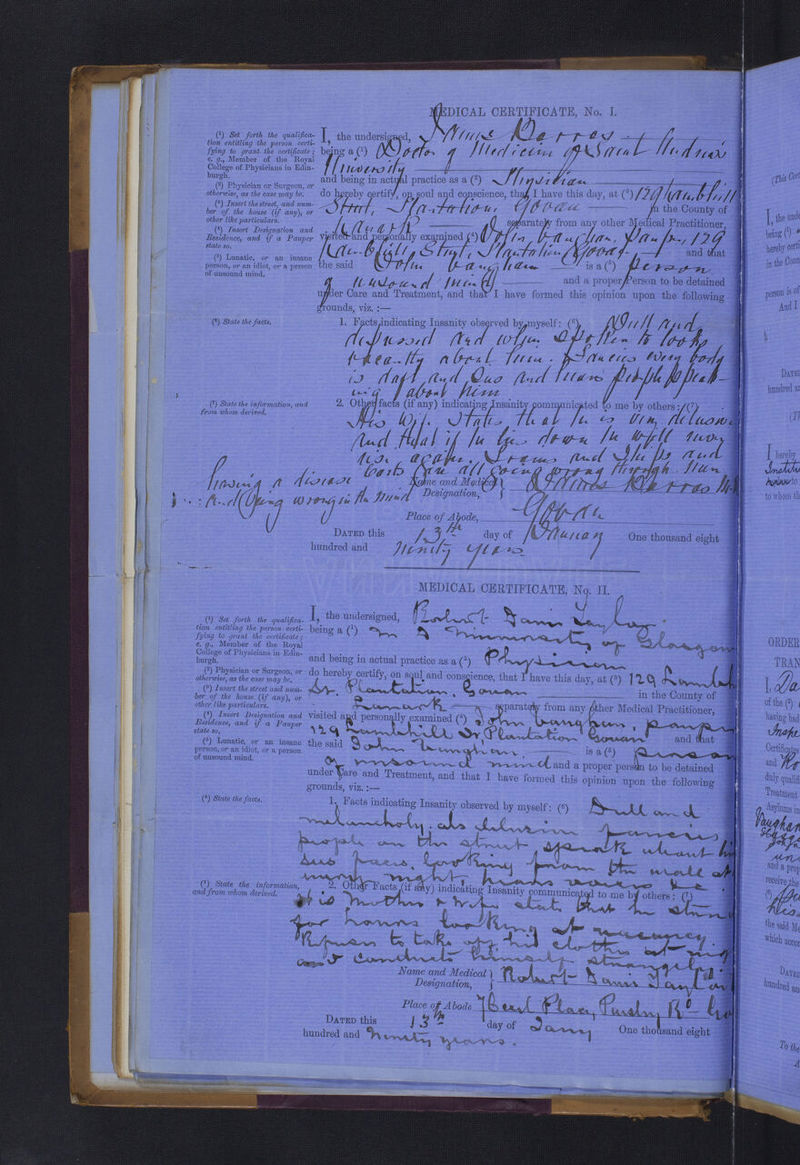 MEDICAL CERTIFICATE, No. I.
(1) Set forth the qualifica-
tion entitling the person certi-
fying to grant the certificate;
e. g., Member of the Royal
College of Physicians in Edin-
burgh.
(2) Physician or Surgeon, or
otherwise, as the case may be.
(3) Insert the street, and num-
ber of the house (if any), or
other like particulars.
(4) Insert Designation and
Residence, and if a Pauper
state so.
(5) Lunatic, or an insane
person, or an idiot, or a person
of unsound mind.
I, the undersigned, James Barras
being a (1) Doctor of Medicine of Saint Andrews
University
and being in actual practice as a (2) Physician
do hereby certify, on soul and conscience, that I have this day, at (3) 129 Lambhill
Street, Plantation, Govan in the County of
Lanark separately from any other Medical Practitioner,
visited and personally examined (4) John Vaughan, Pauper, 129
Lambhill Street, Plantation Govan and that
the said John Vaughan is a (5) person
of unsound mind and a proper Person to be detained
under Care and Treatment, and that I have formed this opinion upon the following
grounds, viz.:—
(6) State the facts.
1. Facts indicating Insanity observed by myself: (6) Dull and
depressed and when spoken to looks
vacantly about him. Fancies every body
is daft and sees and hears people speak-
ing about him
(7) State the information, and
from whom derived.
2. Other facts (if any) indicating Insanity communicated to me by others: (7)
His wife states that he is very delusive
and that if he lies down he will never
rise again. Trams and Ships and
boats are all going wrong through him
having a disease
and going wrong in the mind
Name and Medical
Designation, James Barras
Place of Abode, Govan
DATED this 13th day of January One thousand eight
hundred and ninety years
MEDICAL CERTIFICATE, No. II.
(1) Set forth the qualifica-
tion entitling the person certi-
fying to grant the certificate;
e. g., Member of the Royal
College of Physicians in Edin-
burgh.
(2) Physician or Surgeon, or
otherwise, as the case may be.
(3) Insert the street and num-
ber of the house (if any), or
other like particulars.
(4) Insert Designation and
Residence, and if a Pauper
state so.
(5) Lunatic, or an insane
person, or an idiot, or a person
of unsound mind.
I, the undersigned, Robert Taylor
being a (1) University of Glasgow
and being in actual practice as a (2) Physician
do hereby certify, on soul and conscience, that I have this day, at (3) 129 Lambhill
St. Plantation, Govan in the County of
Lanark separately from any other Medical Practitioner,
visited and personally examined (4) John Vaughan, pauper
129 Lambhill St Plantation Govan and that
the said John Vaughan, is a (5) person
of unsound mind and a proper person to be detained
under Care and Treatment, and that I have formed this opinion upon the following
grounds, viz.:—
(6) State the facts.
1. Facts indicating Insanity observed by myself: (6) Dull and
melancholy. also delusion fancies
people on the street speak about him
sees faces looking from the wall at
night, hears voices &c.
(7) State the information,
and from whom derived.
2. Other Facts (if any) indicating Insanity communicated to me by others: (7)
His mother & wife state that he
for hours looking at vacancy
Refuses to take off his clothes at night
and conducts himself strangely
Name and Medical
Designation, Robert Taylor
Place of Abode 7 Cecil Place, Paisley Rd
DATED this 13th day of Jany One thousand eight
hundred and Ninety years.